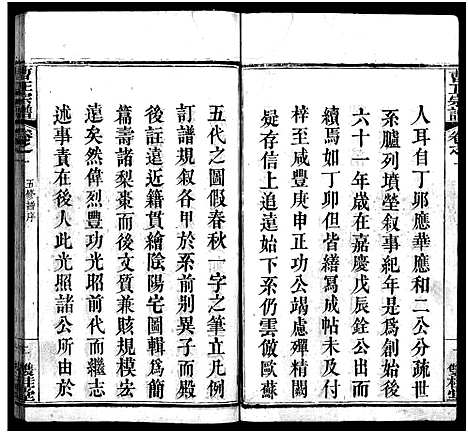 人耳自丁卯應華應和二公分疏世
系臚列墳塋叙事紀年是爲創始後
六十一年歲在嘉慶戊辰銓公出而
續焉如丁卯但皆繕寫成帖未付梨
梓至咸豐庚申正功公竭慮殫精
始合歷歷上追遠始下系仍雲倣歐蘇
五代之圖假春秋一字之筆立凡例
訂譜規叙各甲於系前荆異子於派
後註遠近籍貫繪陰陽宅圖輯爲簡
篇壽諸梨棗而後文質兼賅規模宏
遠矣然烈豐功光昭前代而繼志
述事責在後人此光照諸公所由於
五修譜序
雙桂堂
曹氏宗譜
卷之一